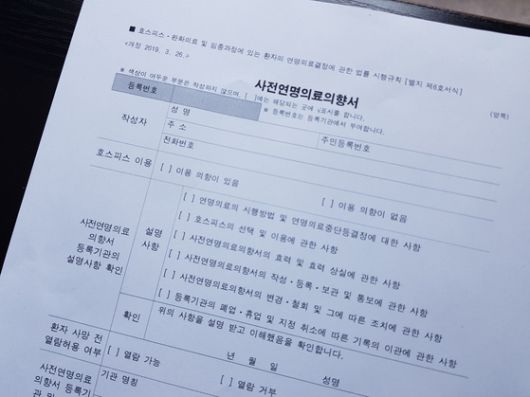 ■ 호스피스ㆍ완화의료 및 임종과정에 있는 환자의 연명의료결정에 관한 법률 시행규칙 [별지 제6호서식]
<개정 2019. 3. 26.>
사전연명의료의향서
(앞쪽)
※ 색상이 어두운 부분은 작성하지 않으며, [ ]에는 해당되는 곳에 √표시를 합니다.
등록번호
※ 등록번호는 등록기관에서 부여합니다.
작성자
성 명
주민등록번호
주 소
전화번호
호스피스 이용
[ ] 이용 의향이 있음
[ ] 이용 의향이 없음
사전연명의료
의향서
등록기관의
설명사항 확인
설명
사항
[ ] 연명의료의 시행방법 및 연명의료중단등결정에 대한 사항
[ ] 호스피스의 선택 및 이용에 관한 사항
[ ] 사전연명의료의향서의 효력 및 효력 상실에 관한 사항
[ ] 사전연명의료의향서의 작성ㆍ등록ㆍ보관 및 통보에 관한 사항
[ ] 사전연명의료의향서의 변경ㆍ철회 및 그에 따른 조치에 관한 사항
[ ] 등록기관의 폐업ㆍ휴업 및 지정 취소에 따른 기록의 이관에 관한 사항
확인
위의 사항을 설명 받고 이해했음을 확인합니다.
년 월 일 성명
환자 사망 전
열람허용 여부
[ ] 열람 가능
[ ] 열람 거부
사전연명의료
의향서 등록기
기관 명칭